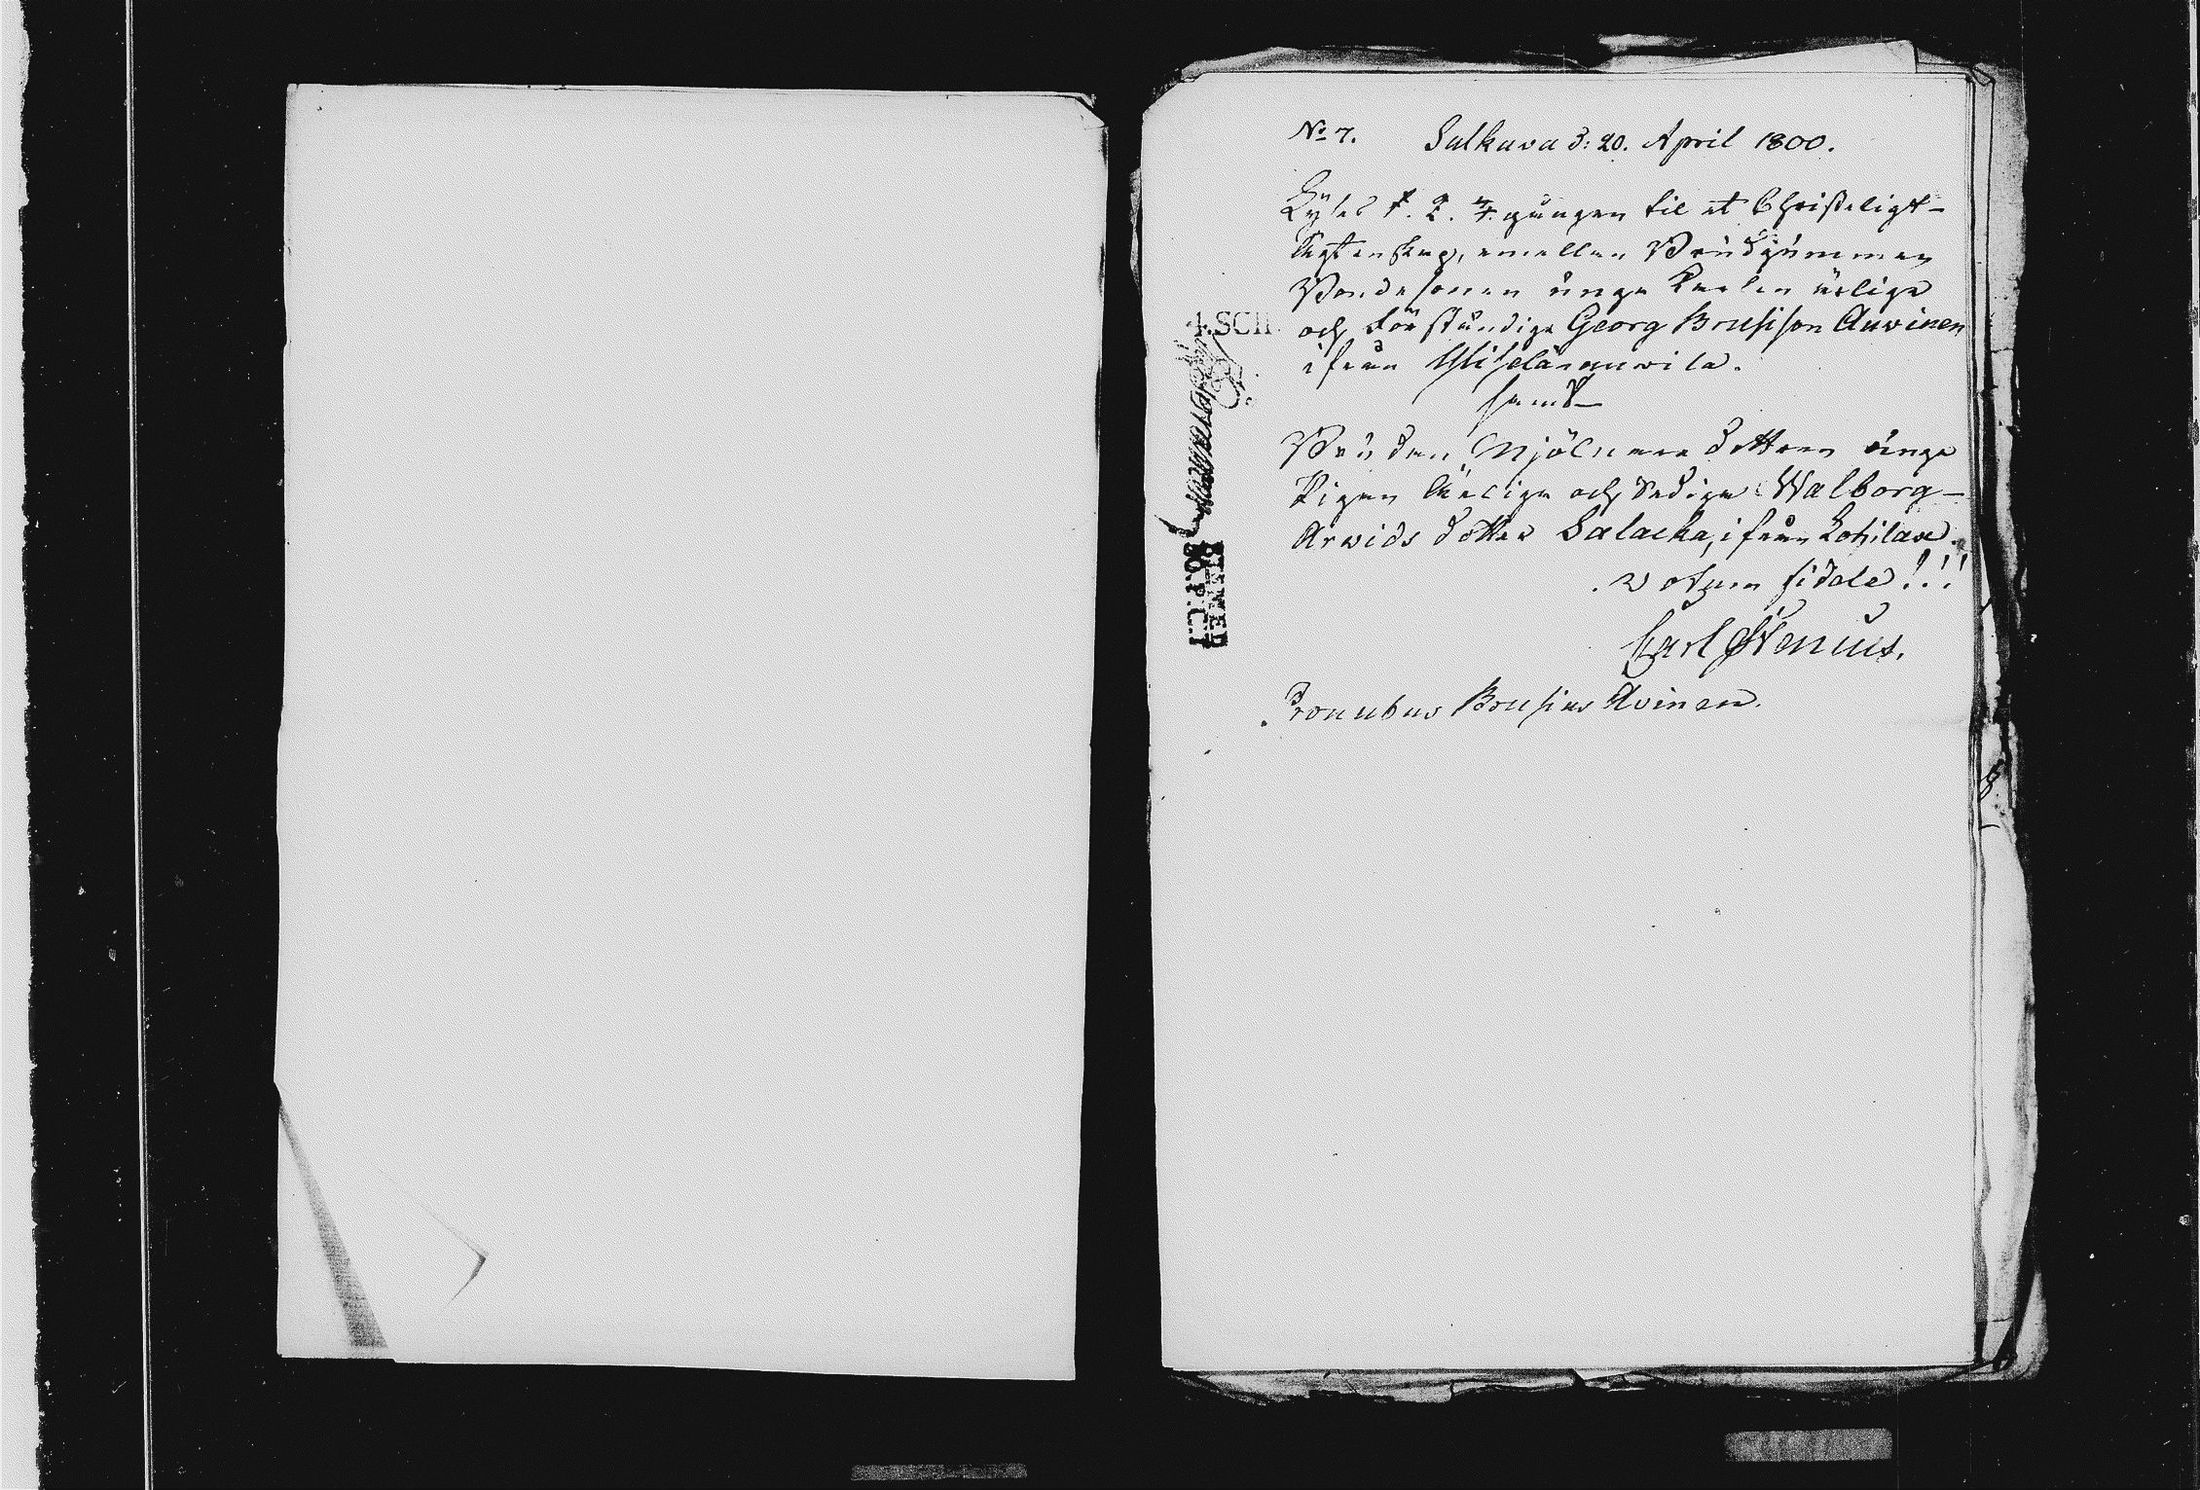 No 7. Sulkava d: 20. April 1800.
Lyses 1. 2. 3. gången til et Christeligt
Ächtenskap, emellan Brudgummen
Bondesonen unga Karlen ärlige
och Förståndige Georg Brusisson Auvinen
ifrån Auvila.
samt
Bruden, Mjölnare dottren unga
Pigan Ärliga och Sediga Walborg
Arvids dotter Salacka, ifrån Lohilax.
votum fidele!!!
Carl Stenius.
Pronubus Brusius Avinen.
4.SCH.